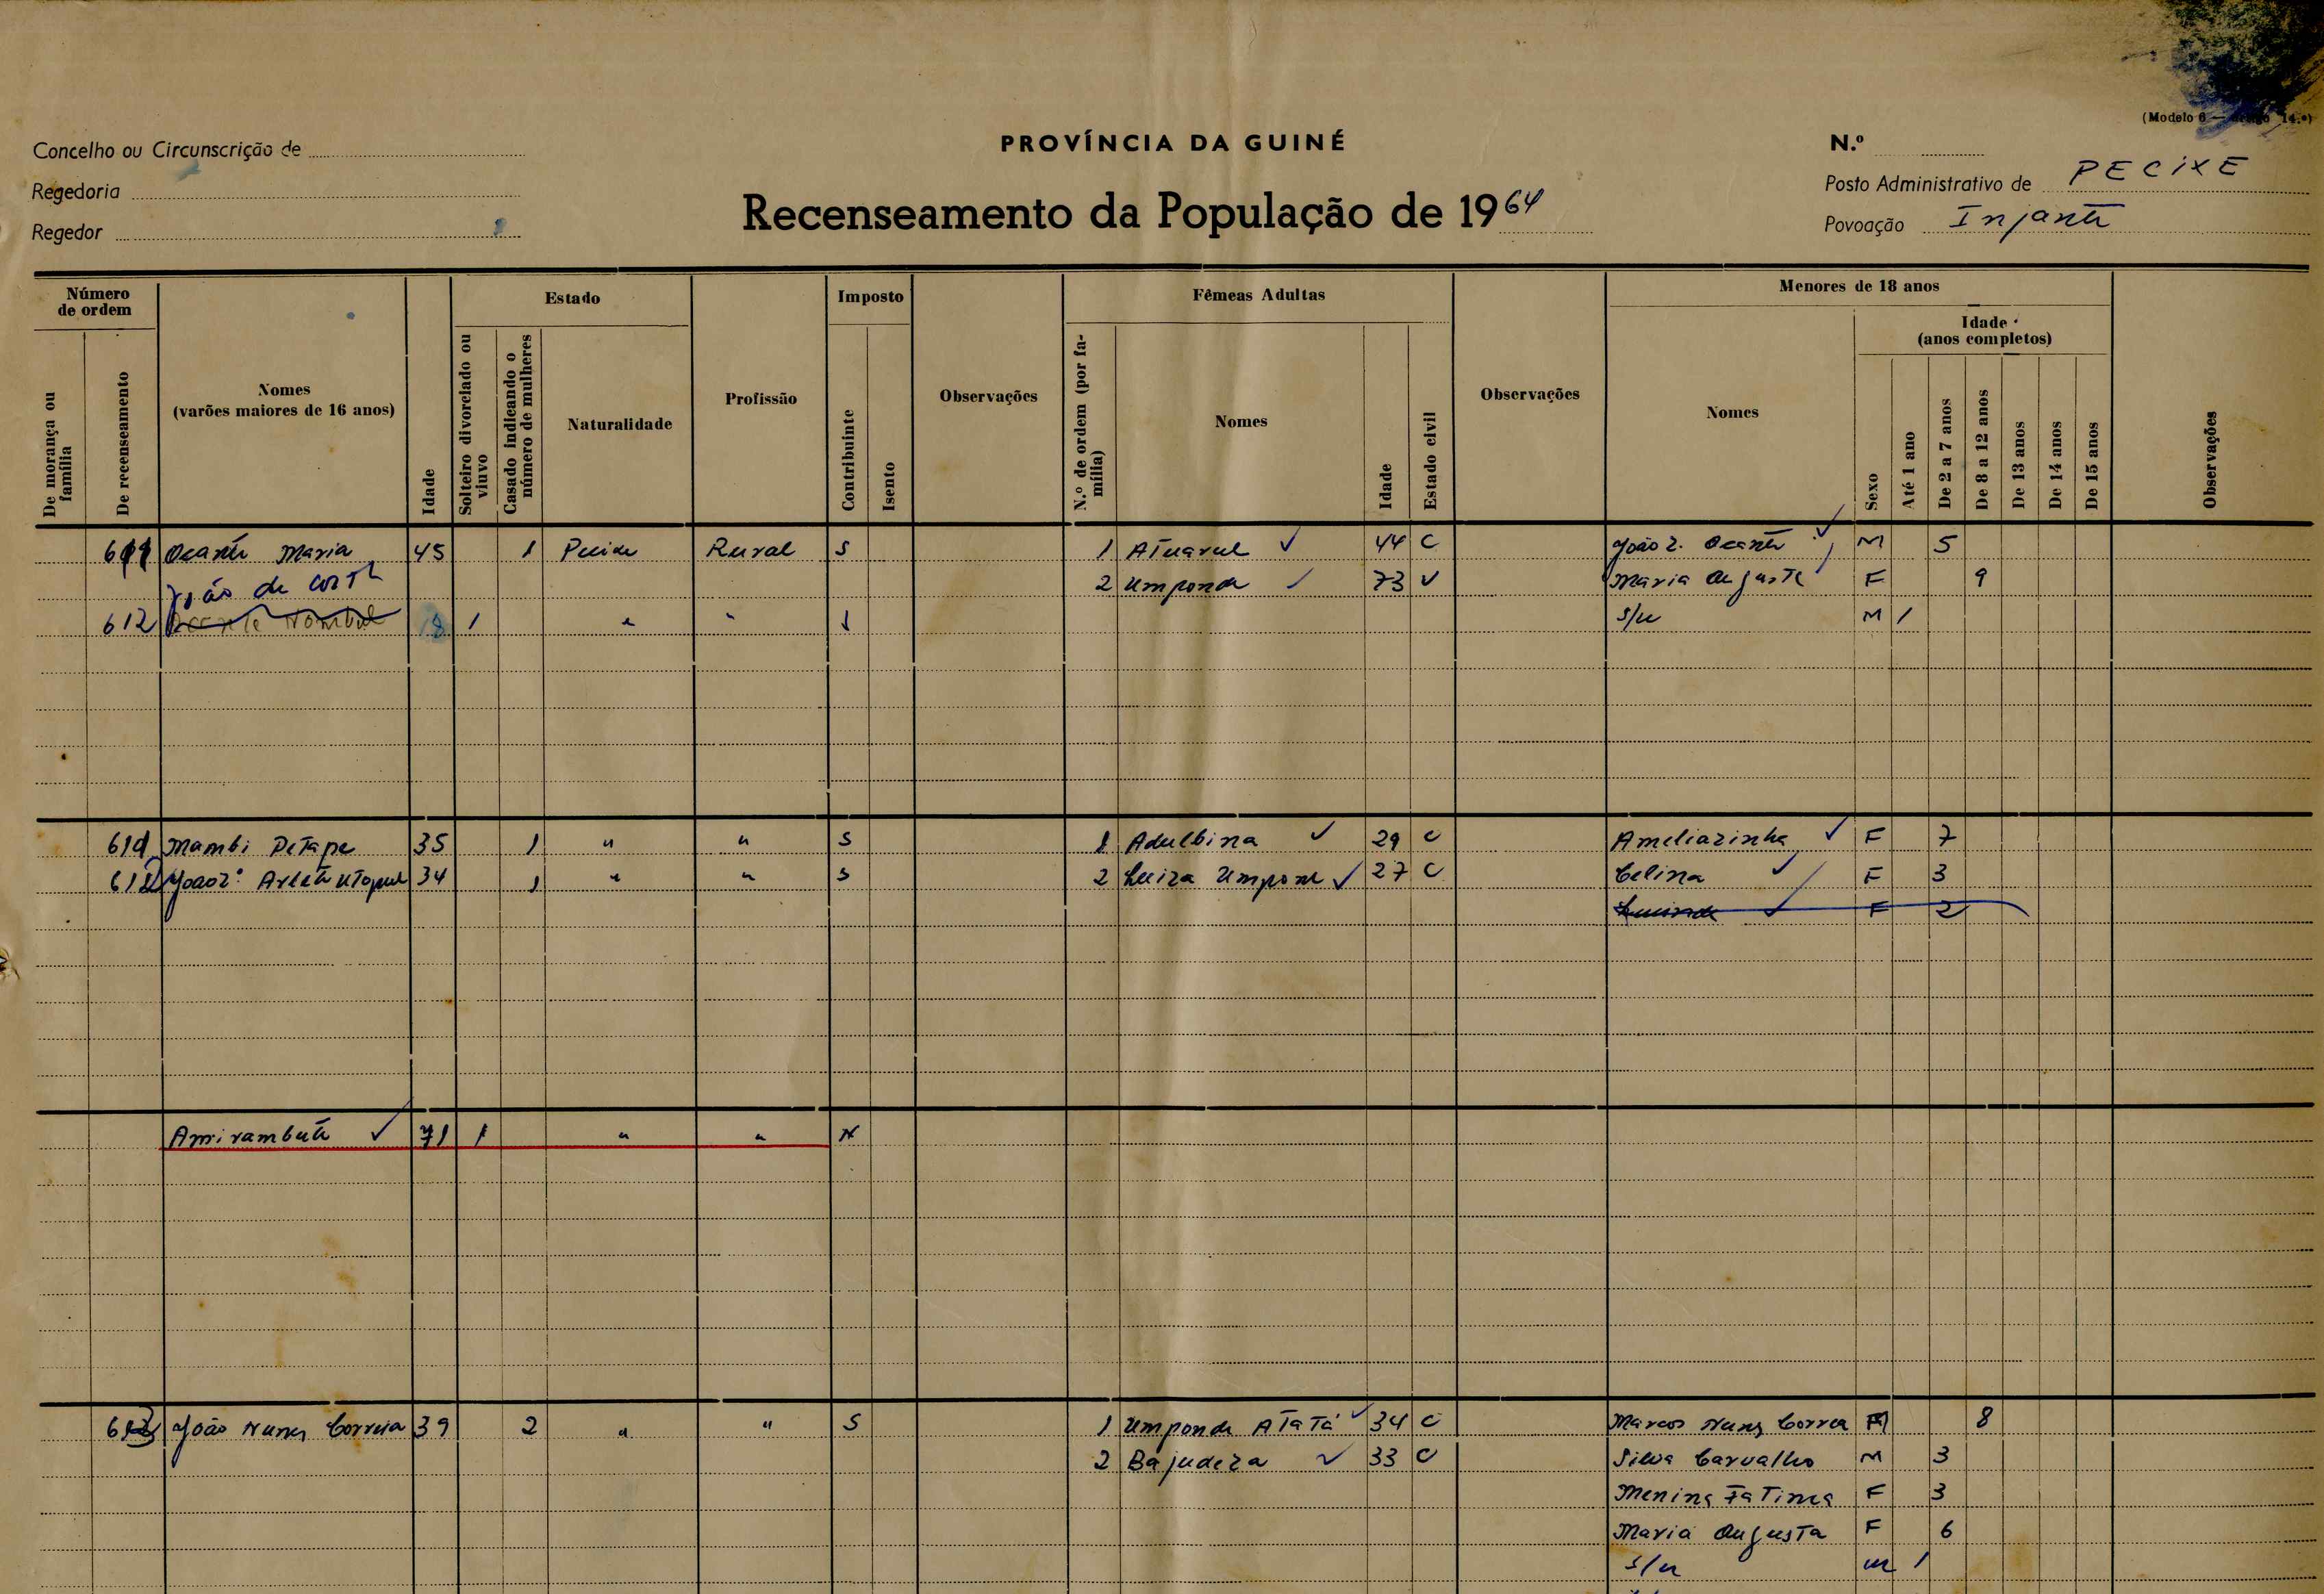 (Modelo 6 — 14.º)
PROVÍNCIA DA GUINÉ
Recenseamento da População de 1964
Concelho ou Circunscrição de
Regedoria
Regedor
N.º
Posto Administrativo de PECIXE
Povoação Injante
Número de ordem
De morança ou família
De recenseamento
Nomes
(varões maiores de 16 anos)
Idade
Estado
Solteiro divorciado ou viuvo
Casado indicando o número de mulheres
Naturalidade
Profissão
Imposto
Contribuinte
Isento
Observações
Fêmeas Adultas
N.º de ordem (por família)
Nomes
Idade
Estado civil
Observações
Menores de 18 anos
Nomes
Idade
(anos completos)
Sexo
Até 1 ano
De 2 a 7 anos
De 8 a 12 anos
De 13 anos
De 14 anos
De 15 anos
Observações
611 Ocante Maria 45 1 Rural S 1 Atuavul 44 C João Z. Ocante M 5
João de 2 Umponda 73 V Maria Augusta F 9
612 18 1 " " s/n M 1
611 Mambi Petape 35 1 " " S 1 Adulbina 29 C Ameliazinha F 7
612 34 1 " " S 2 Luiza 27 C Celina F 3
F 2
71 1 " " N
613 João Nunes Correia 39 2 " " S 1 Umponda Atatá 34 C Marcos Nunes Correa M 8
2 Bajudeza 33 C Silva Carvalho M 3
Menina Fatima F 3
Maria Augusta F 6
s/n M 1